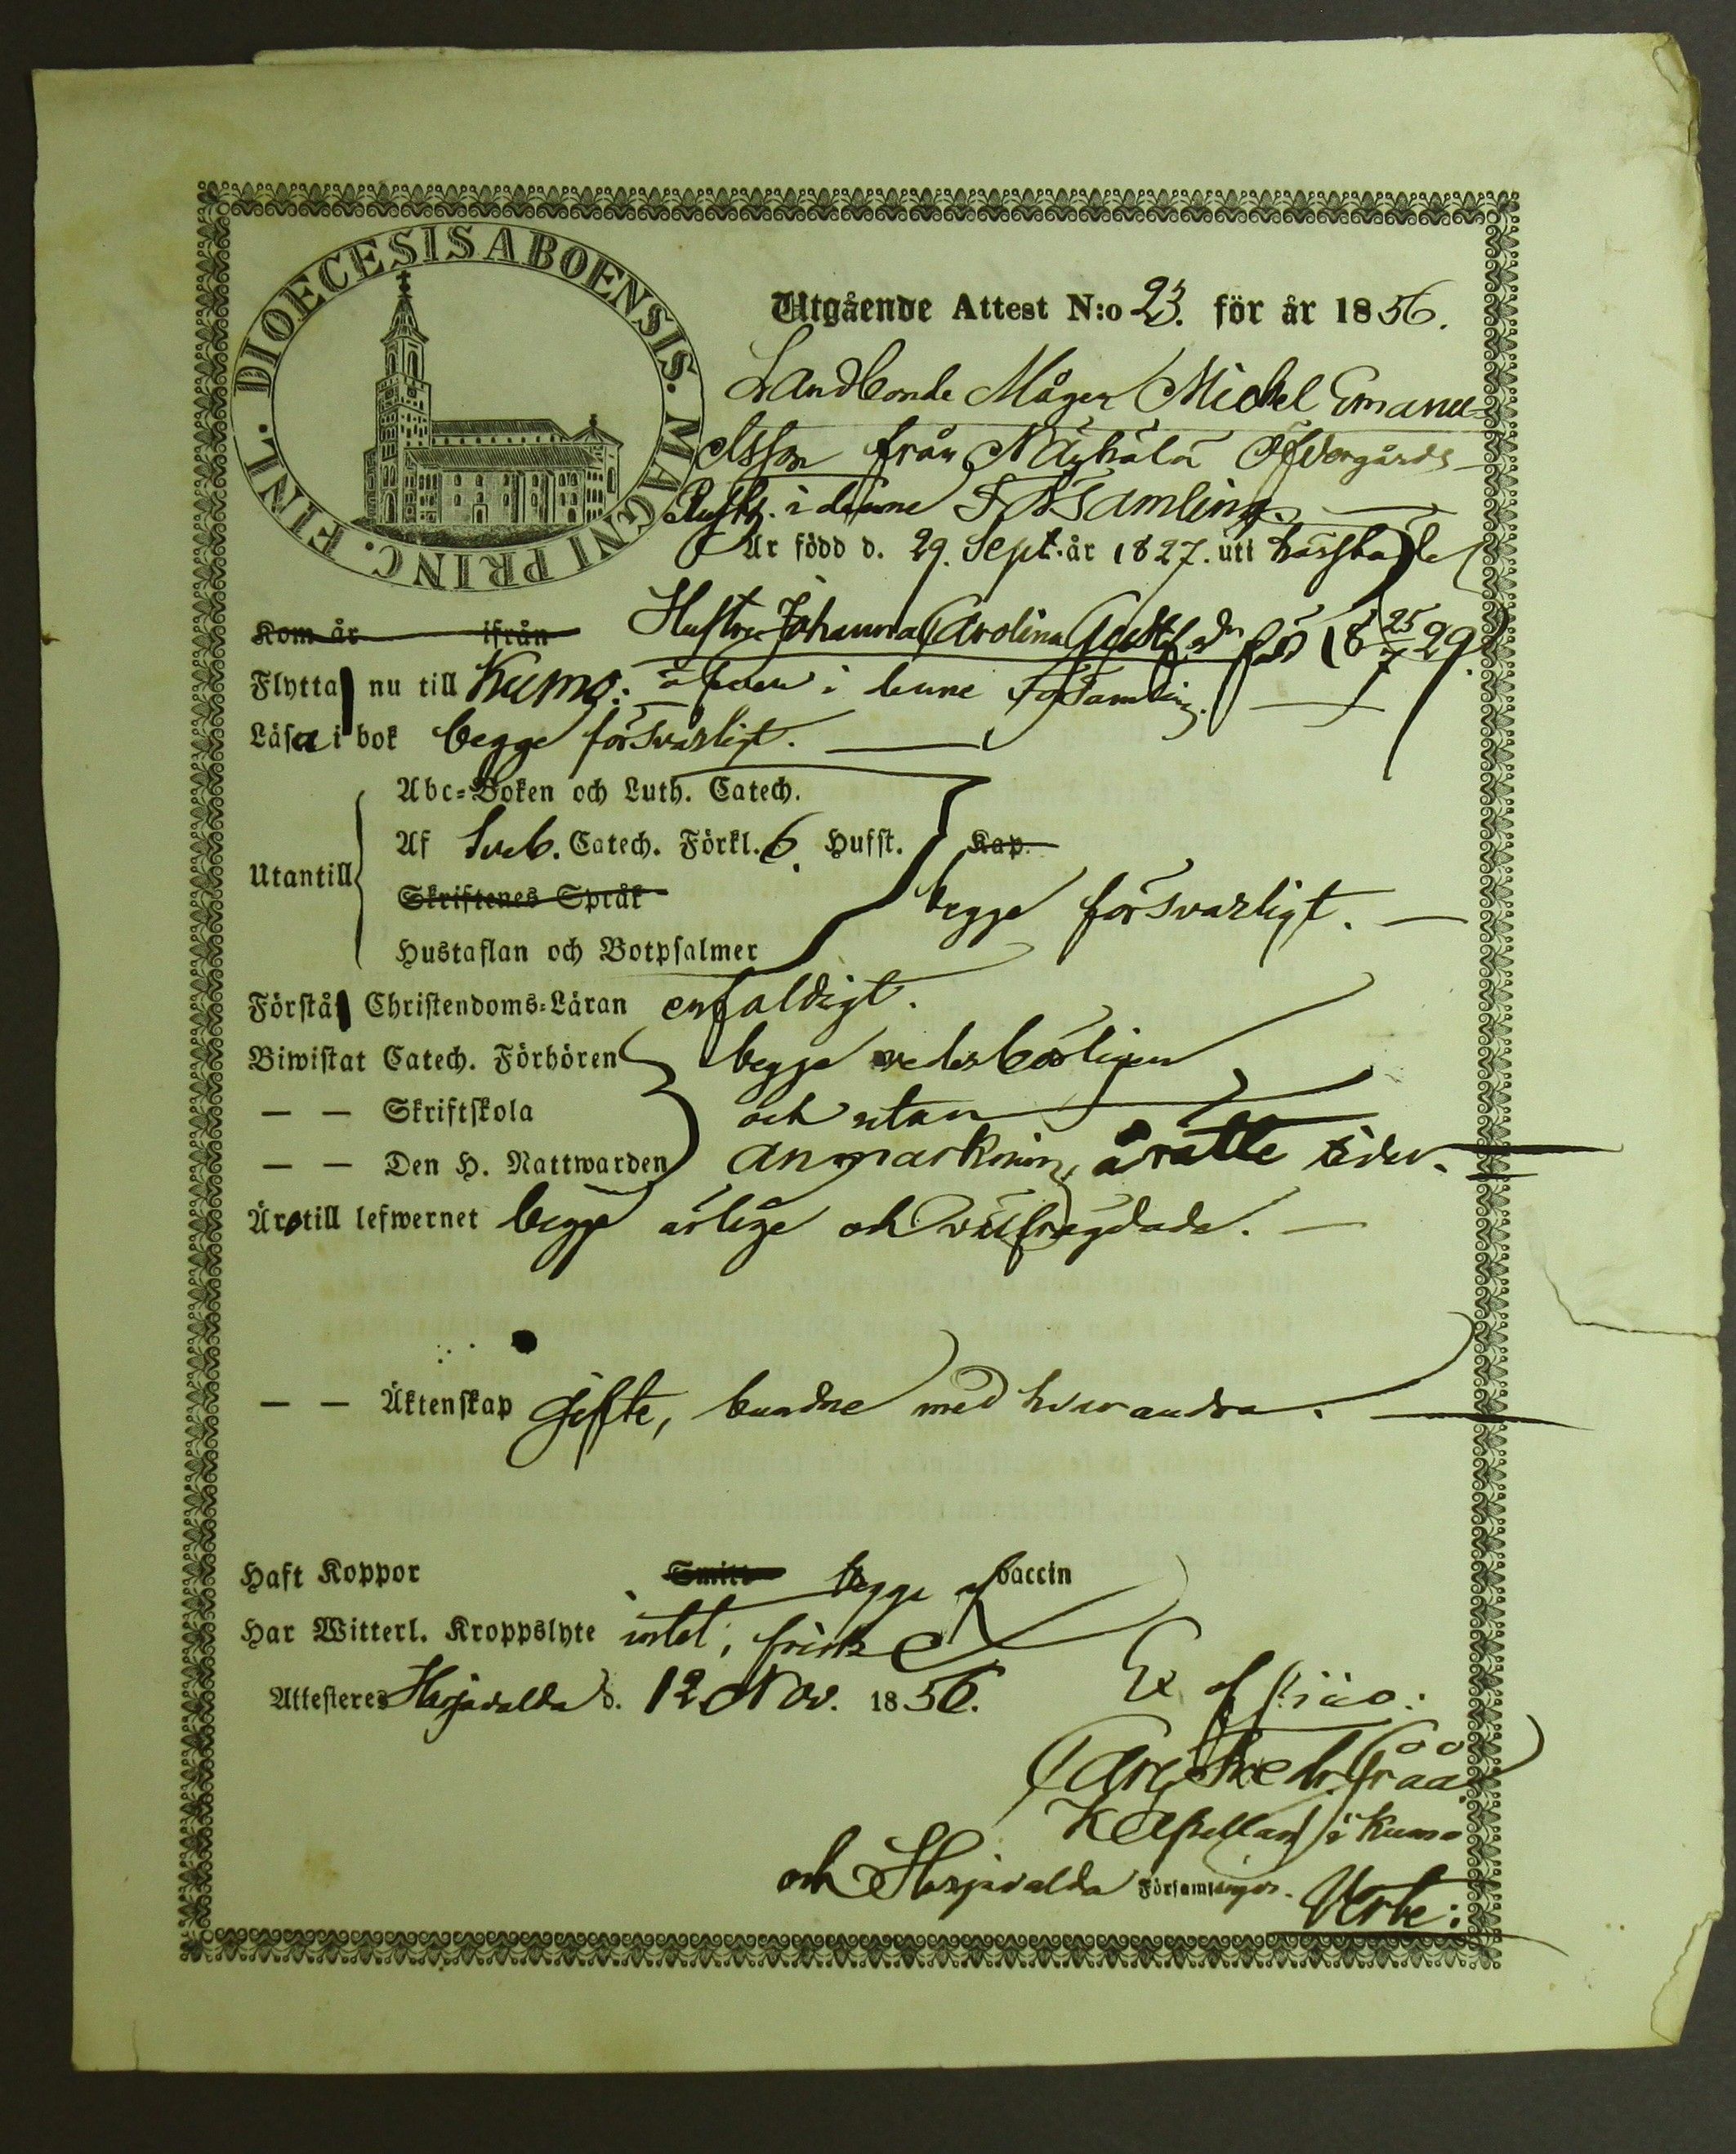 DIOECESIS ABOENSIS. MAGNI PRINC. FINL.
Utgående Attest N:o 23. för år 1856.
Landbonde Mågen Michel Emanu-
elsson från Öfvergårds
Rusth. i denne Församling.
Är född d. 29. Sept. år 1827. uti
Hustru Johanna Carolina född 18 25/7 29.
Kom år ifrån
Flytta nu till Kumo: i denne Församling.
Läsa i bok begge försvarligt.
Abc-Boken och Luth. Catech.
Utantill
Af Sveb. Catech. Förkl. 6. Hufst. Kap.
Skriftenes Språk
begge försvarligt.
Hustaflan och Botpsalmer
Förstå Christendoms-Läran enfaldigt.
Biwistat Catech. Förhören begge vederbörligen
— — Skriftskola och utan
— — Den H. Nattwarden anmärkning, å rätte tider.
Äro till lefwernet begge ärlige och välfrägdade.
— — Äktenskap gifte, bundne med hvarandra.
Haft Koppor Smitt begge vaccin
Har Witterl. Kroppslyte intet; friske
Attesteres Harjavalda d. 12 Nov. 1856.
Ex officio:
Carl Fredr. Gråå.
Kapellan i Kumo
och Harjavalda Församlingar.
Verte: